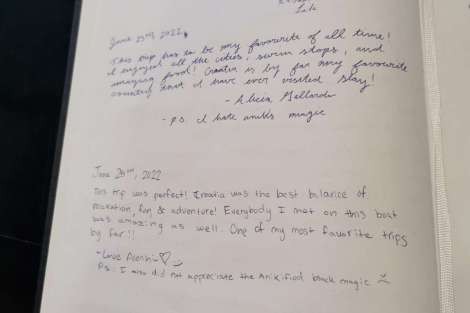 June 25th, 2022
This trip has to be my favourite of all time!
I enjoyed all the cities, swim stops, and
amazing food! Croatia is by far my favourite
country that I have ever visited slay!
- Alicia
- p.s. I hate anik's magic
June 26th, 2022
This trip was perfect! Croatia was the best balance of
relaxation, fun & adventure! Everybody I met on this boat
was amazing as well. One of my most favorite trips
by far!!
-Love
Ps: I also did not appreciate the black magic